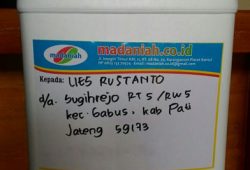 madaniah.co.id
madaniah
Kepada: LIES RUSTANTO
d/a. Sugihrejo RT 5 / RW 5
kec. Gabus, kab Pati
Jateng 59173